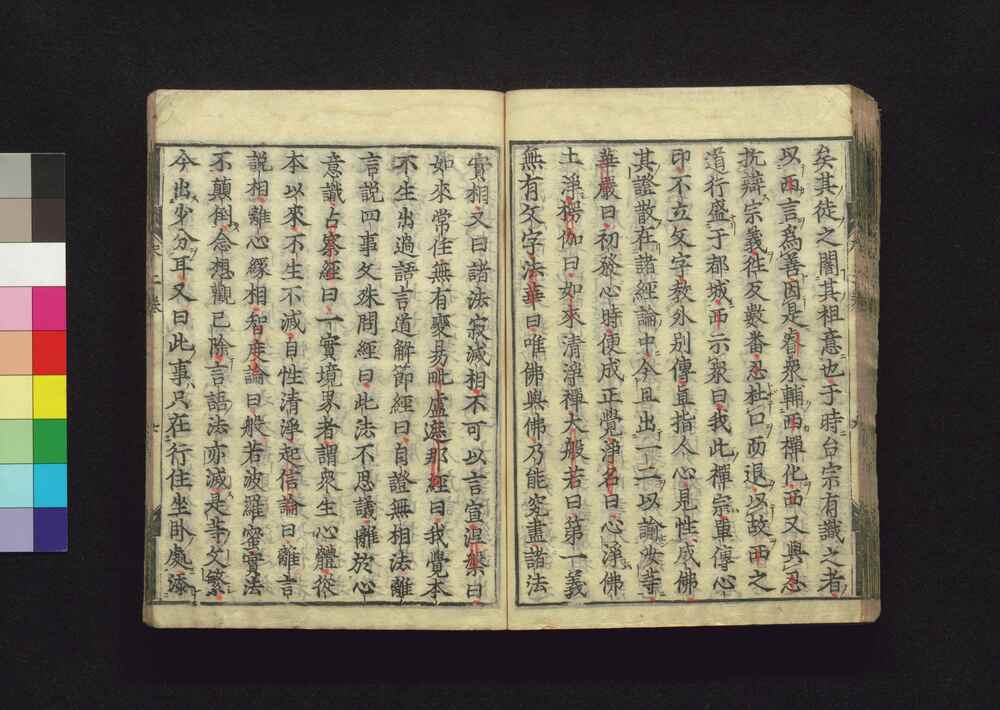 矣其徒之闇其祖意也于時台宗有識之者
以西言爲善因是睿衆輔西禪化西又與忌
抗辯宗義往反數番忌杜口而退以故西之
道行盛于都城西示衆曰我此禪宗單傳心
印不立文字教外別傳直指人心見性成佛
其證散在諸經論中今且出一二以諭汝等
華嚴曰初發心時便成正覺淨名曰心淨佛
土淨楞伽曰如來清淨禪大般若曰第一義
無有文字法華曰唯佛與佛乃能究盡諸法
實相又曰諸法寂滅相不可以言宣涅槃曰
如來常住無有變易毗盧遮那經曰我覺本
不生出過語言道解節經曰自證無相法離
言說四事文殊問經曰此法不思議離於心
意識占察經曰一實境界者謂衆生心體從
本以來不生不滅自性清淨起信論曰離言
說相離心緣相智度論曰般若波羅蜜實法
不顛倒念想觀已除言語法亦滅是等文繁
今出少分耳又曰此事只在行住坐臥處添